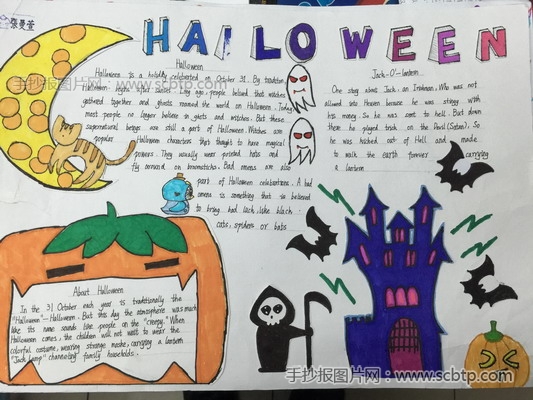 张曼莹
HALLOWEEN
手抄报图片网：www.scbtp.com
Halloween
Halloween is a holiday celebrated on October 31. By tradition
Halloween begins after sunset. Long ago, people belived that witches
gathered together and ghosts roamed the world on Halloween. Today
most people no longer believe in ghosts and witches. But these
supernatural beings are still a part of Halloween. Witches are
popular Halloween characters thought to have magical
powers. They usually wore pointed hats and
fly around on broomsticks. Bad omens are also
part of Halloween celebrations. A bad
omens is something that is believed
to bring bad luck, like black
cats, spiders or bats
Jack-O'-lantern
One story about Jack, an Irishman, Who was not
allowed into Heaven because he was stingy with
his money. So he was sent to hell. But down
there he played trick on the Devil (Satan), So
he was kicked out of Hell and made
to walk the earth forever carrying
a lantern
About Halloween
In the 31 October each year is traditionally the
"Halloween"—Halloween. But this day the atmosphere was much
like its name sounds like people on the "creepy." When
Halloween comes, the children will not wait to wear the
colorful costume, wearing strange mask, carrying a lantern
"Jack lamp" channeling family households.
手抄报图片网：www.scbtp.com